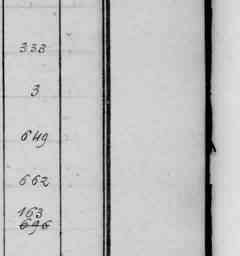 333
3
649
662
163
696